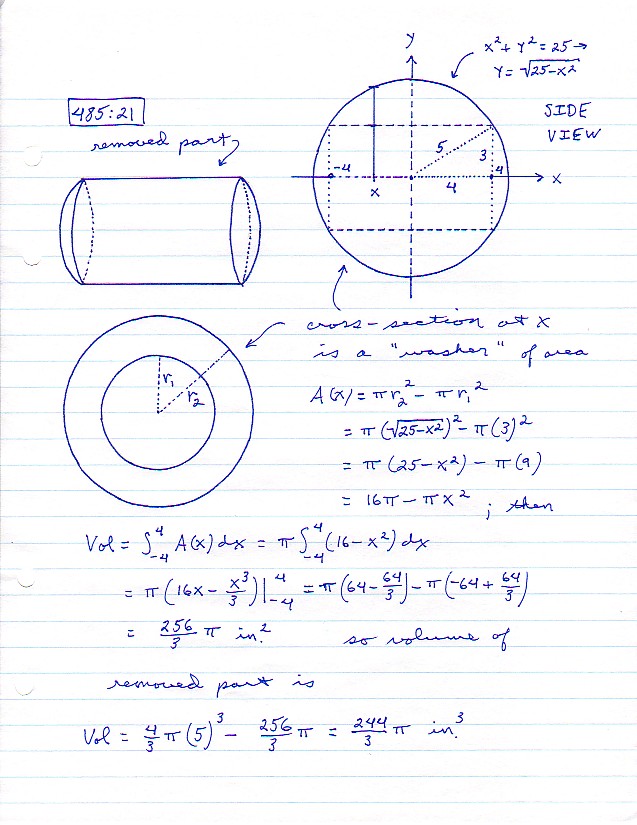 485:21
removed part
y
x² + y² = 25 →
y = √25-x²
SIDE
VIEW
5
3
-4
4
4
x
x
cross-section at x
is a "washer" of area
r₁
r₂
A(x) = πr₂² - πr₁²
= π(√25-x²)² - π(3)²
= π(25-x²) - π(9)
= 16π - πx² ; then
Vol = ∫₋₄⁴ A(x)dx = π∫₋₄⁴ (16-x²)dx
= π(16x - x³/3)|₋₄⁴ = π(64 - 64/3) - π(-64 + 64/3)
= 256/3 π in.² so volume of
removed part is
Vol = 4/3 π(5)³ - 256/3 π = 244/3 π in.³